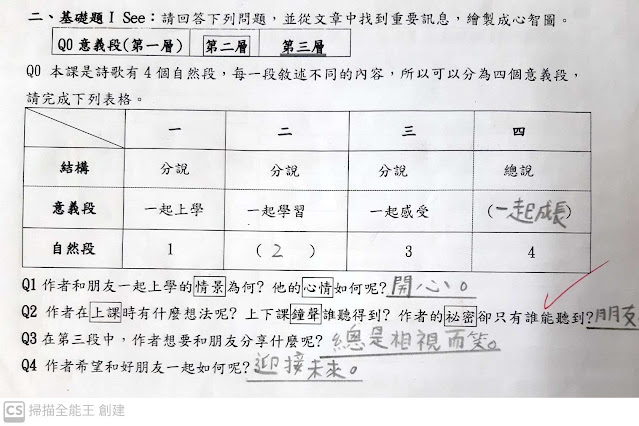 二、基礎題 I See：請回答下列問題，並從文章中找到重要訊息，繪製成心智圖。
Q0 意義段(第一層) 第二層 第三層
Q0 本課是詩歌有 4 個自然段，每一段敘述不同的內容，所以可以分為四個意義段，
請完成下列表格。
一 二 三 四
結構 分說 分說 分說 總說
意義段 一起上學 一起學習 一起感受 (一起成長)
自然段 1 (2) 3 4
Q1 作者和朋友一起上學的情景為何？他的心情如何呢？開心。
Q2 作者在上課時有什麼想法呢？上下課鐘聲誰聽得到？作者的祕密卻只有誰能聽到？朋友
Q3 在第三段中，作者想要和朋友分享什麼呢？總是相視而笑。
Q4 作者希望和好朋友一起如何呢？迎接未來。
CS 掃描全能王 創建